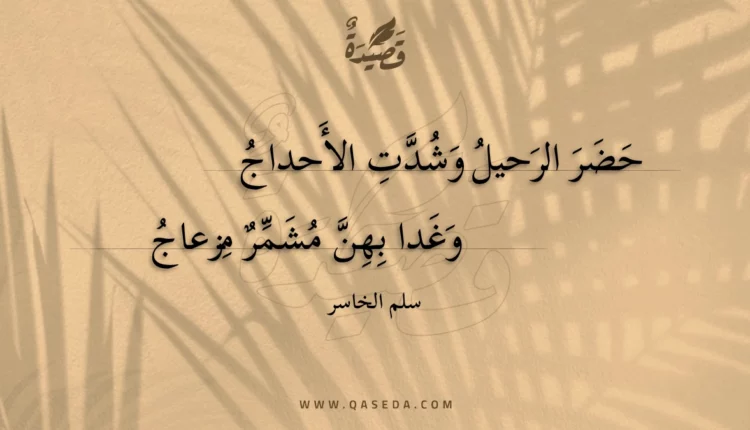 قَصِيْدَةٌ
حَضَرَ الرَحيلُ وَشُدَّتِ الأَحداجُ
وَغَدا بِهِنَّ مُشَمِّرٌ مِزعاجُ
سلم الخاسر
WWW.QASEDA.COM